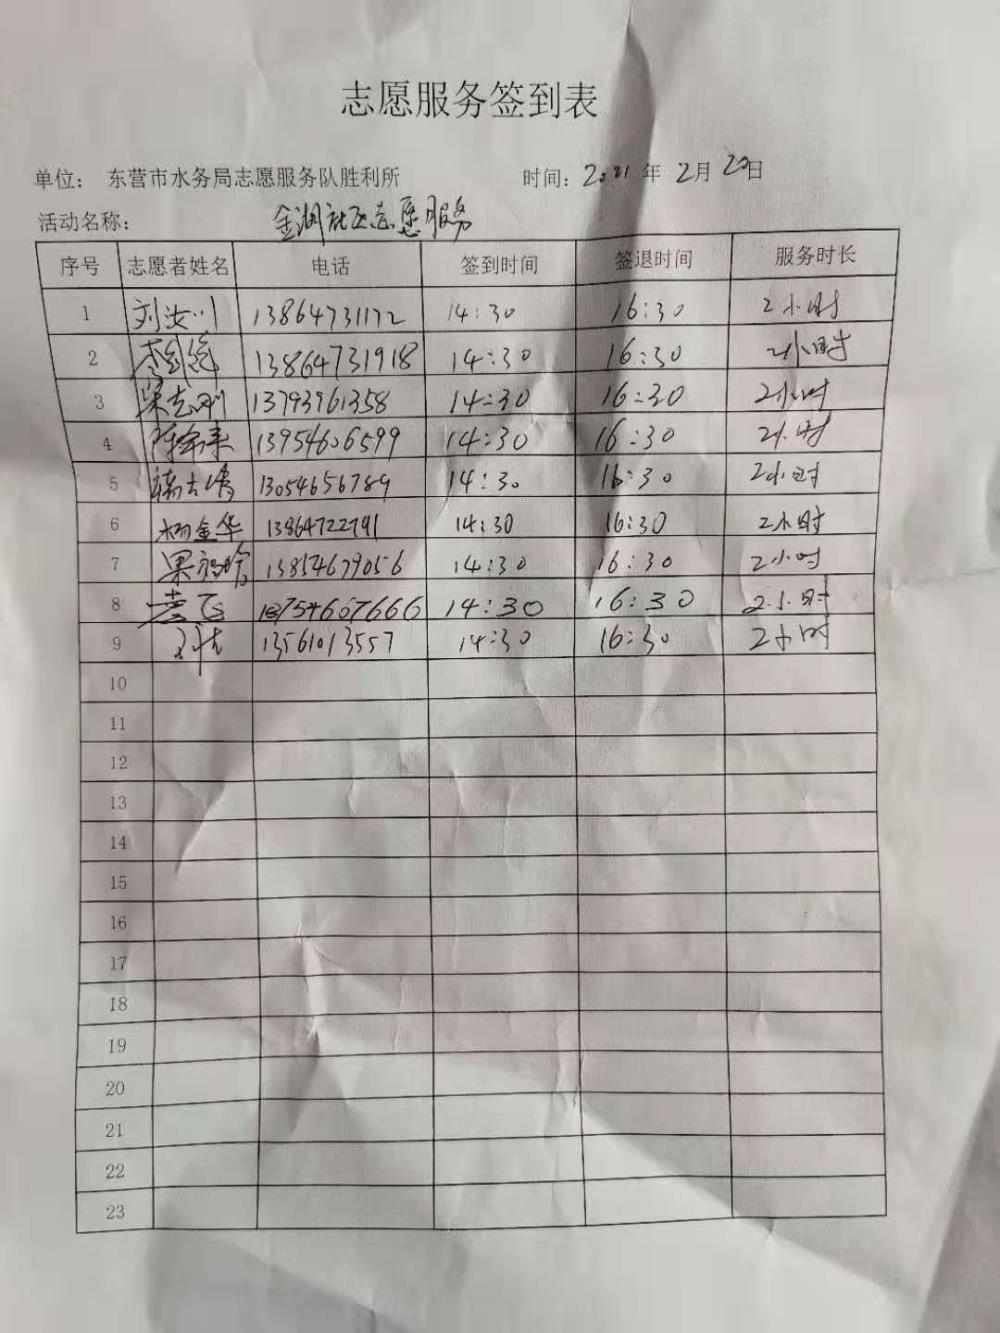 志愿服务签到表
单位： 东营市水务局志愿服务队胜利所 时间：2021年2月20日
活动名称： 金润社区志愿服务
序号 志愿者姓名 电话 签到时间 签退时间 服务时长
1 13864731172 14:30 16:30 2小时
2 13864731918 14:30 16:30 2小时
3 梁志刚 13793961358 14:30 16:30 2小时
4 13954606599 14:30 16:30 2小时
5 13054656789 14:30 16:30 2小时
6 杨金华 13864722791 14:30 16:30 2小时
7 13854679056 14:30 16:30 2小时
8 18754607666 14:30 16:30 2小时
9 13561013557 14:30 16:30 2小时
10
11
12
13
14
15
16
17
18
19
20
21
22
23